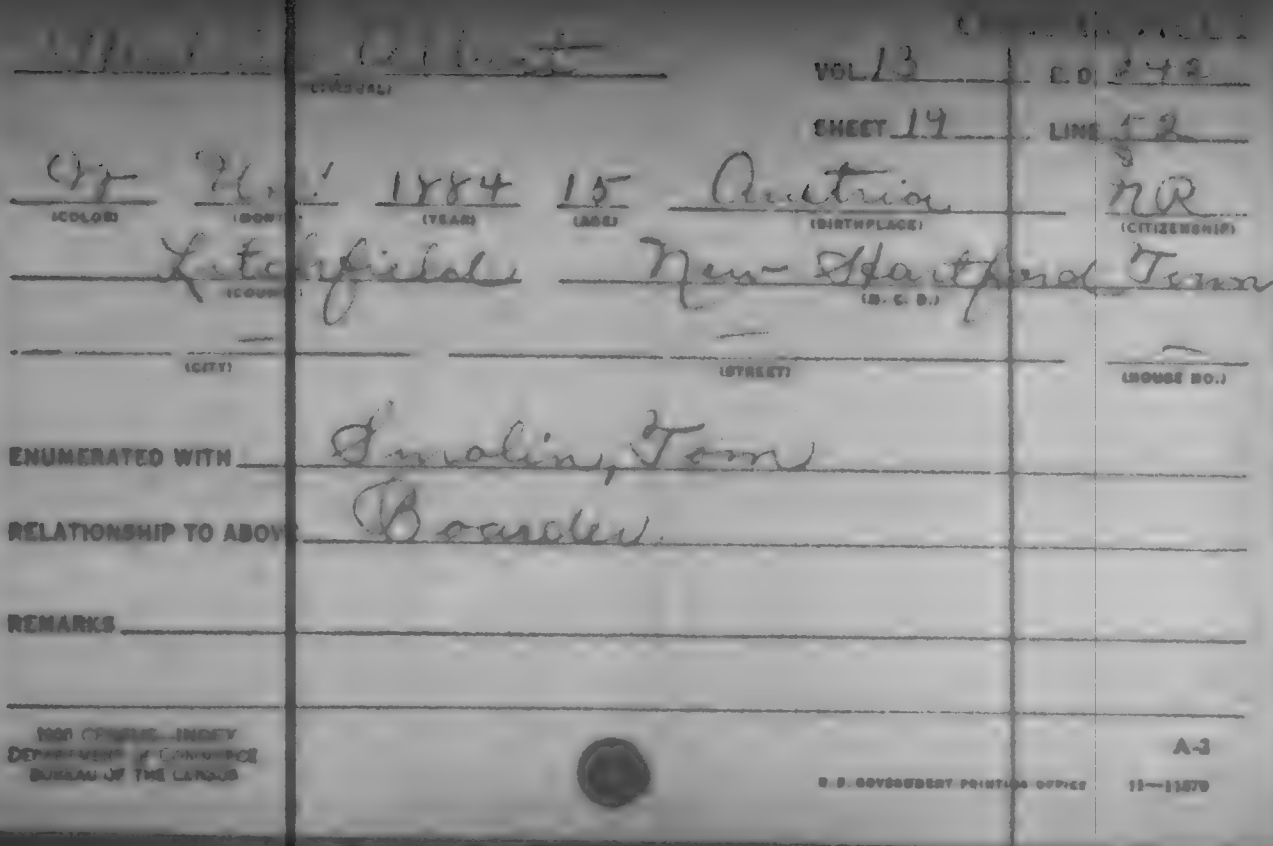 Albert
VOL. 13 E. D. 242
(INDIVIDUAL)
SHEET 19 LINE 52
W 1884 15 Austria NR
(COLOR) (MONTH) (YEAR) (AGE) (BIRTHPLACE) (CITIZENSHIP)
Litchfield New Hartford Town
(COUNTY) (M. C. D.)
— — —
(CITY) (STREET) (HOUSE NO.)
ENUMERATED WITH Smolin, Tom
RELATIONSHIP TO ABOVE Boarder
REMARKS
1900 CENSUS—INDEX
DEPARTMENT OF COMMERCE A-3
BUREAU OF THE CENSUS U. S. GOVERNMENT PRINTING OFFICE